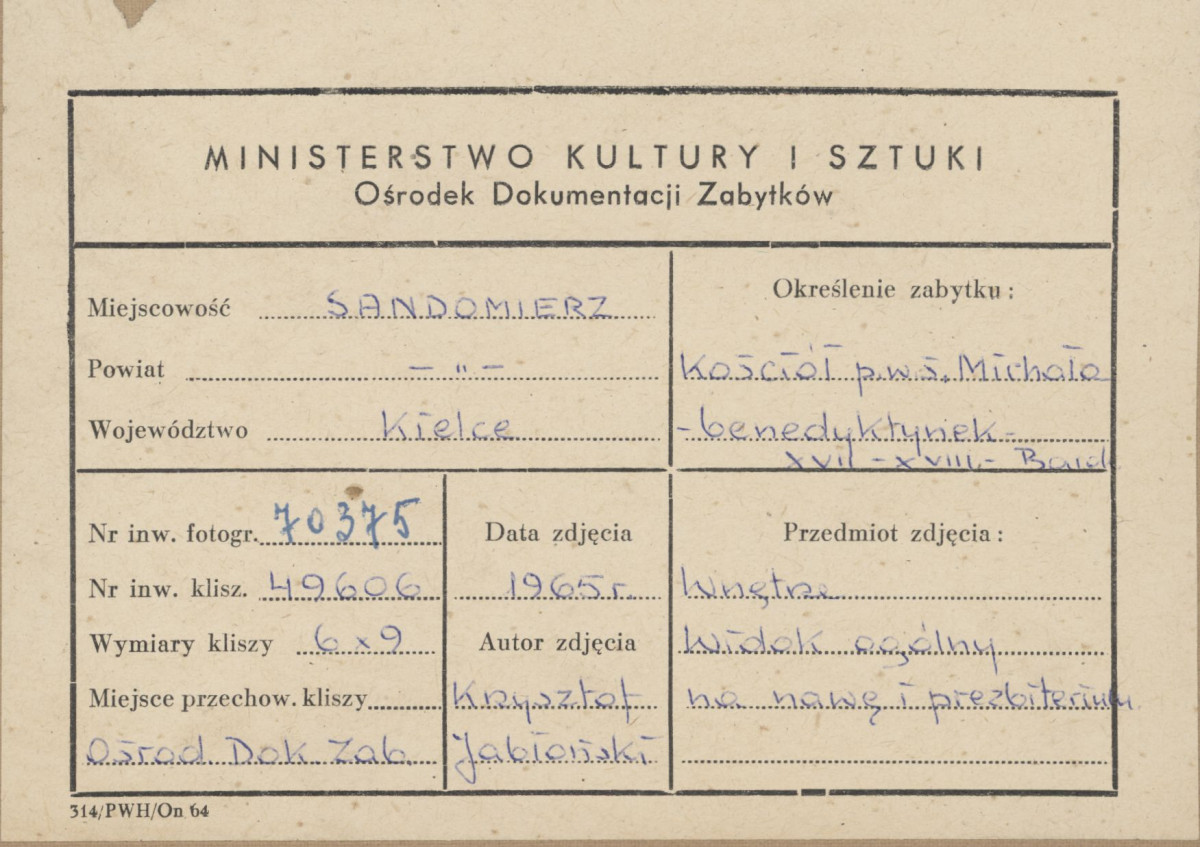 MINISTERSTWO KULTURY I SZTUKI
Ośrodek Dokumentacji Zabytków
Miejscowość SANDOMIERZ
Powiat — " —
Województwo Kielce
Określenie zabytku:
Kościół p.w.ś. Michała
-benedyktynek-
XVII - XVIII. - Barok
Nr inw. fotogr. 70375
Nr inw. klisz. 49606
Wymiary kliszy 6 x 9
Miejsce przechow. kliszy
Ośrod Dok. Zab.
Data zdjęcia
1965 r.
Autor zdjęcia
Krzysztof
Jabłoński
Przedmiot zdjęcia:
Wnętrze
Widok ogólny
na nawę i prezbiterium
314/PWH/On 64